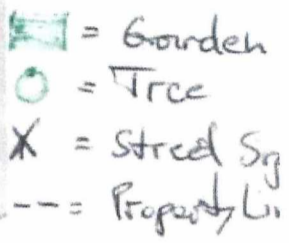 = Garden
= Tree
X = Street Sg
-- = Property Li